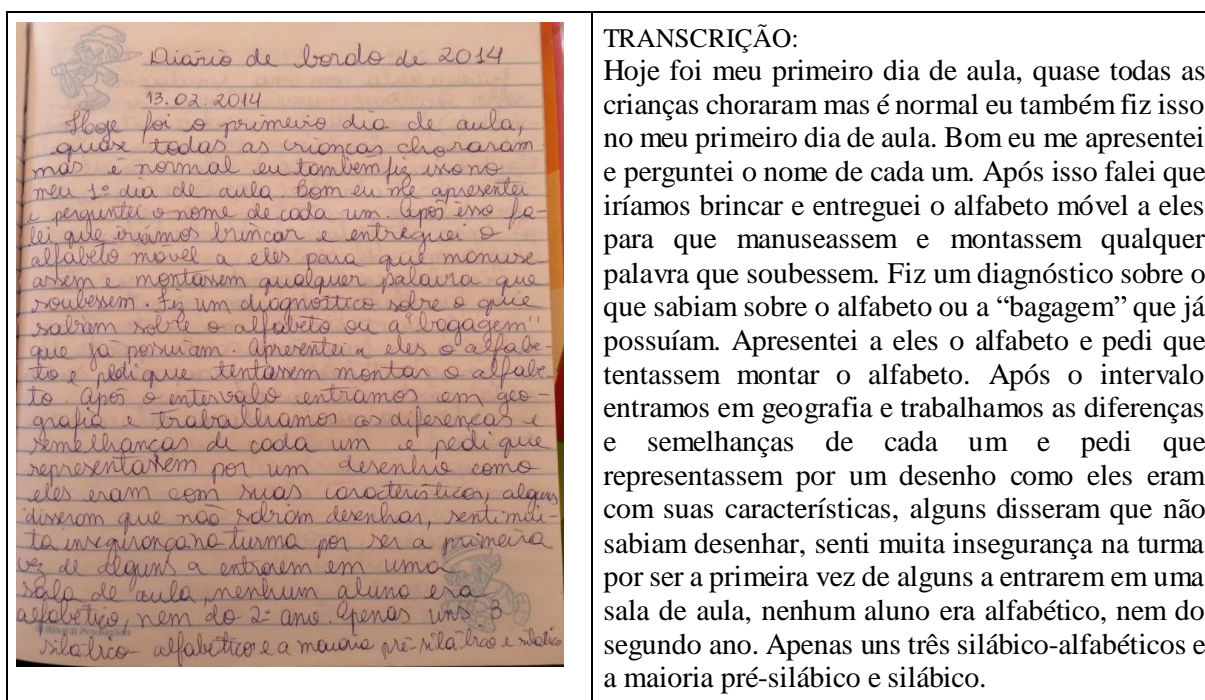 Diário de bordo de 2014
13.02.2014
Hoje foi o primeiro dia de aula,
quase todas as crianças choraram
mas é normal eu também fiz isso no
meu 1º dia de aula. Bom eu me apresentei
e perguntei o nome de cada um. Após isso fa-
lei que iríamos brincar e entreguei o
alfabeto móvel a eles para que manuse
assem e montassem qualquer palavra que
soubessem. Fiz um diagnóstico sobre o que
sabiam sobre o alfabeto ou a "bagagem"
que já possuíam. Apresentei a eles o alfabe-
to e pedi que tentassem montar o alfabe-
to. Após o intervalo entramos em geo-
grafia e trabalhamos as diferenças e
semelhanças de cada um e pedi que
representassem por um desenho como
eles eram com suas características, alguns
disseram que não sabiam desenhar, senti mui-
ta insegurança na turma por ser a primeira
vez de alguns a entrarem em uma
sala de aula, nenhum aluno era
alfabético, nem do 2º ano. Apenas uns 3
silábico-alfabético e a maioria pré-silábico e silábico
TRANSCRIÇÃO:
Hoje foi meu primeiro dia de aula, quase todas as
crianças choraram mas é normal eu também fiz isso
no meu primeiro dia de aula. Bom eu me apresentei
e perguntei o nome de cada um. Após isso falei que
iríamos brincar e entreguei o alfabeto móvel a eles
para que manuseassem e montassem qualquer
palavra que soubessem. Fiz um diagnóstico sobre o
que sabiam sobre o alfabeto ou a “bagagem” que já
possuíam. Apresentei a eles o alfabeto e pedi que
tentassem montar o alfabeto. Após o intervalo
entramos em geografia e trabalhamos as diferenças
e semelhanças de cada um e pedi que
representassem por um desenho como eles eram
com suas características, alguns disseram que não
sabiam desenhar, senti muita insegurança na turma
por ser a primeira vez de alguns a entrarem em uma
sala de aula, nenhum aluno era alfabético, nem do
segundo ano. Apenas uns três silábico-alfabéticos e
a maioria pré-silábico e silábico.